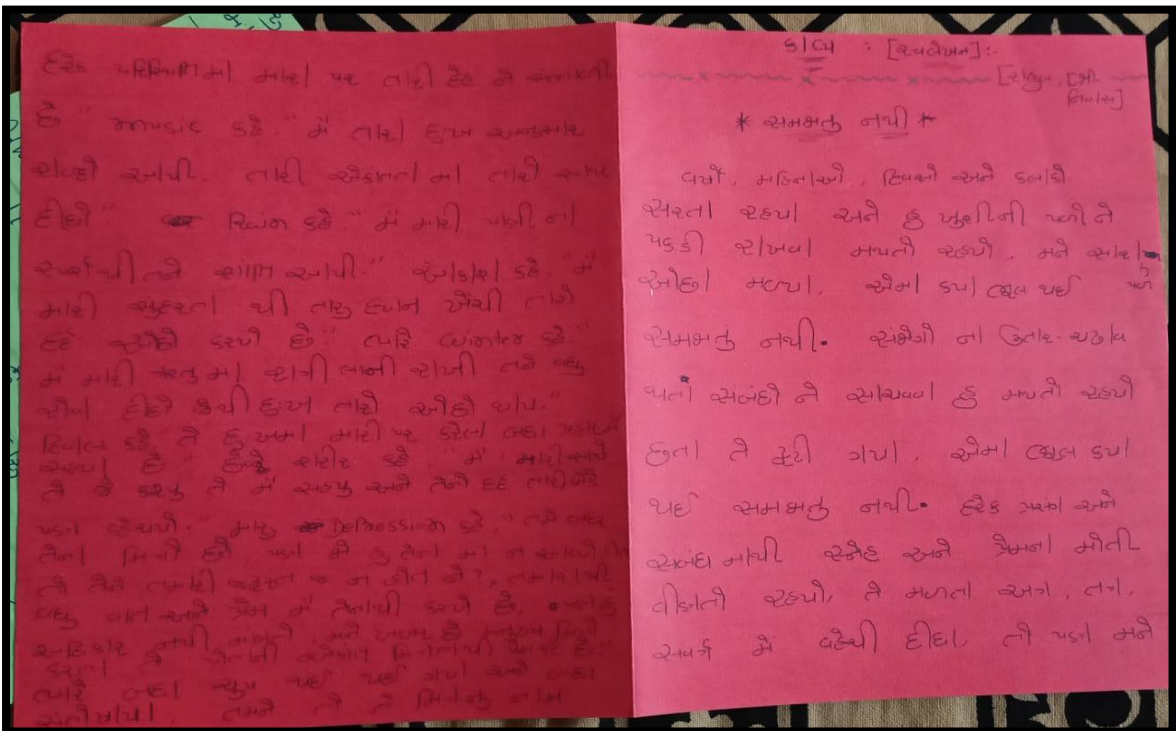 દરેક પરિસ્થિતિમાં મારા પર તારી દેહ ને સંભાળી
છે " કહે." મેં તારા દુઃખ અનુસાર
આપી. તારી એકાંતતા માં તારો સાથ
દીધો" કહે." મેં મારી પાણી ના
સ્પર્શથી તને શાંતિ આપી." આકાશ કહે. "મેં
મારી સુંદરતા થી તારુ ધ્યાન ખેંચી તારો
દર્દ ઓછો કરયો છે" ત્યારે winter કહે."
મેં મારી ઋતુ મા રાત્રી લાંબી રાખી તને વધુ
દીધો જેથી દુઃખ તારો ઓછો થાય."
દિવાલ કહે "તે દુઃખમાં મારી પર કરેલા બધા
સહયા છે" શરીર કહે. "મેં મારી સાથે
તે જે કરયુ તે મેં સહયુ અને તેનો દર્દ તારી જોડે
પણ વહેંચયો." મારુ Depression કહે. "તમે બધા
તેના મિત્રો છો પણ જો હું તેના મા ન આવયો હોત
તો તેને તમારી જરૂરત જ ન હોત ને?, તમારાથી
વધુ વાત અને પ્રેમ મેં તેનાથી કરયો છે.
અધિકાર નથી માંગતો, મને ખબર છે મનુષ્ય મિત્રો
કરતા તે પોતાના એકાંત
ત્યારે બધા ચુપ થઈ થઈ ગયા અને બધા
તમને તો તે મિત્રોનુ નામ
કાવ્ય : [સ્વલેખન]:-
* સમજાતુ નથી *
વર્ષો, મહિનાઓ, દિવસો અને કલાકો
સરતા રહયા અને હું ખુશીની પળો ને
પકડી રાખવા મથતો રહયો, મને સારા
પળ
ઓછા મળ્યા. એમાં કયા ભૂલ થઈ
સમજાતું નથી. સંજોગો ના ઉતાર-ચઢાવ
થતા સંબંધો ને સાચવવા હું મથતો રહયો
છતા તે તૂટી ગયા. એમાં ભૂલ કયા
થઈ સમજાતું નથી. દરેક પ્રસંગ અને
સબંધ માંથી સ્નેહ અને પ્રેમના મોતી
વીણતો રહયો, તે મળતા અત્ર, તત્ર,
સર્વત્ર મેં વહેંચી દીધા. તો પણ મને